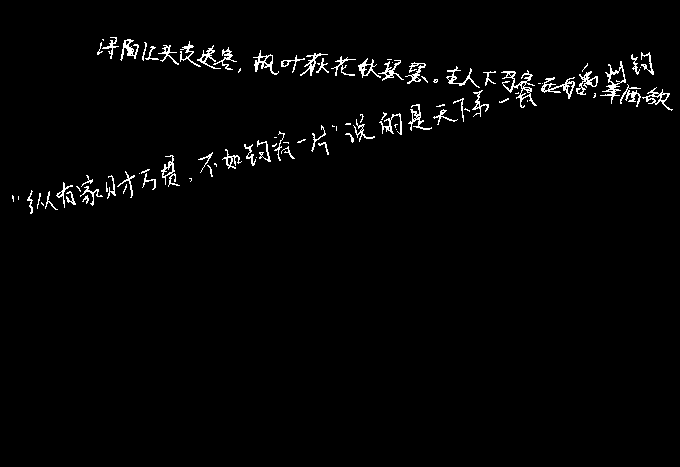 浔阳江头夜送客,枫叶荻花秋瑟瑟。主人下马客在船,举酒欲
“纵有家财万贯,不如钧瓷一片”说的是天下第一瓷——禹州钧